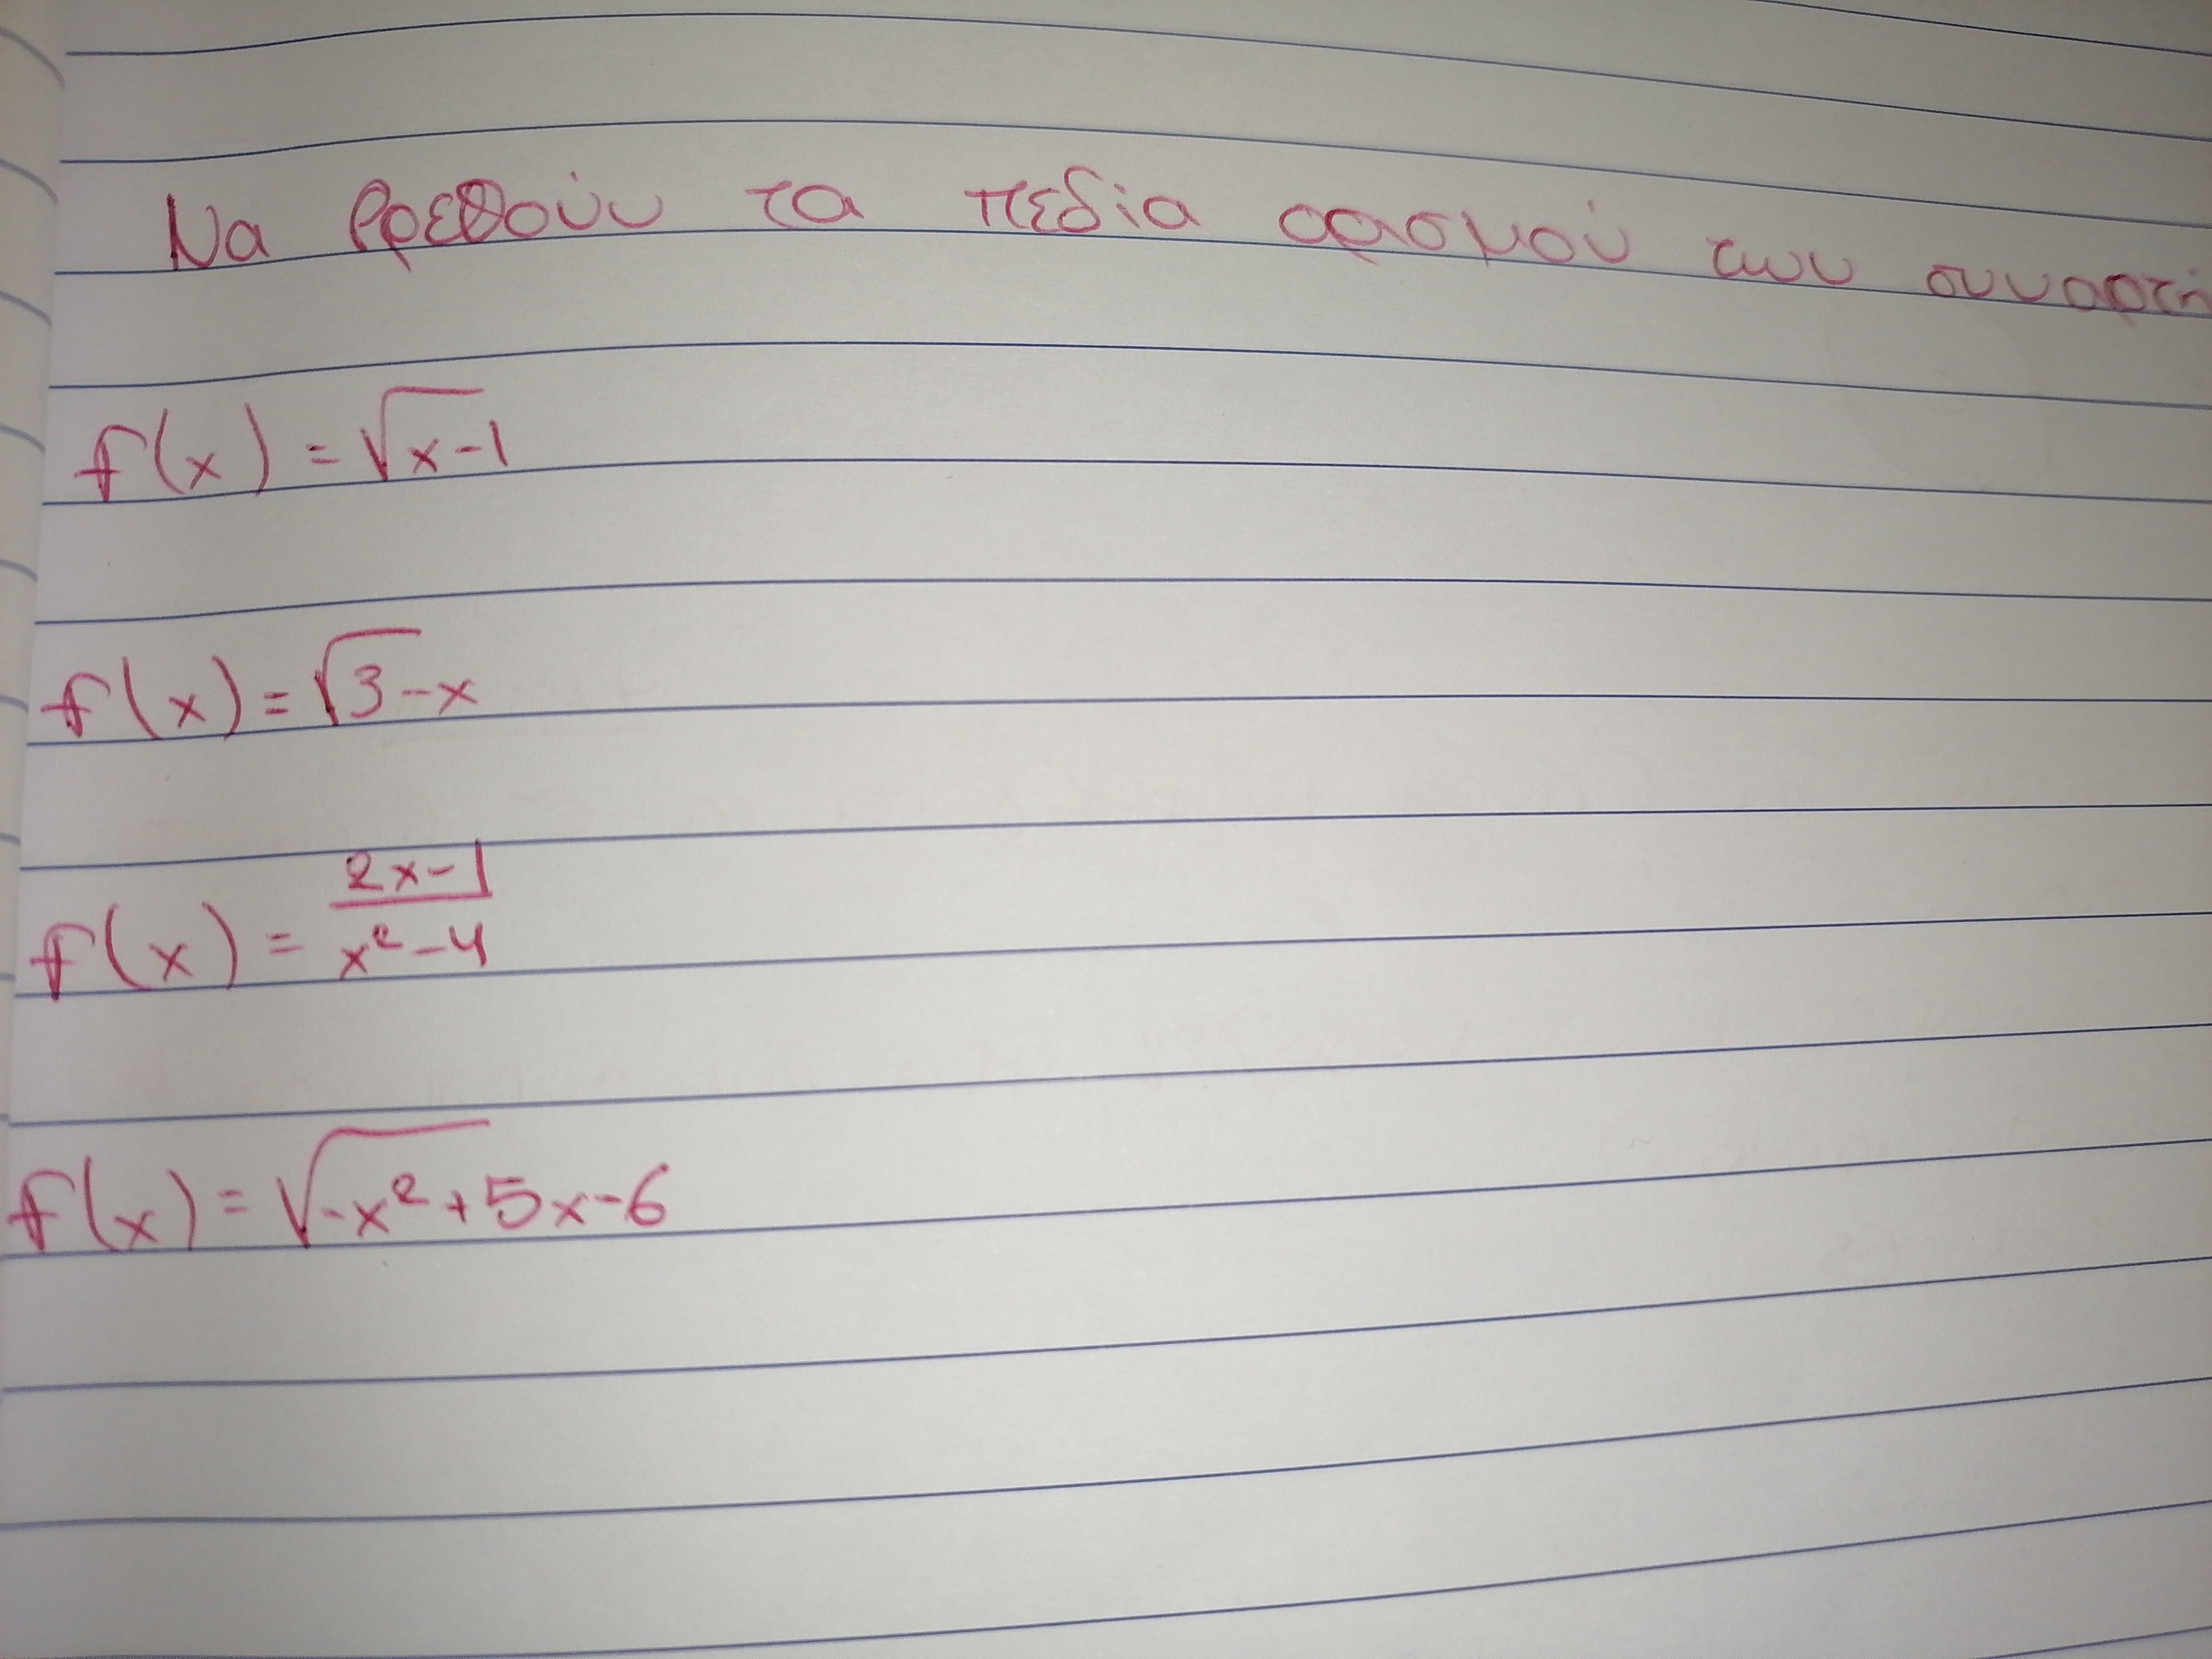 Να βρεθούν τα πεδία ορισμού των συναρτή
f(x) = √x-1
f(x) = √3-x
f(x) = 2x-1 / x²-4
f(x) = √-x²+5x-6